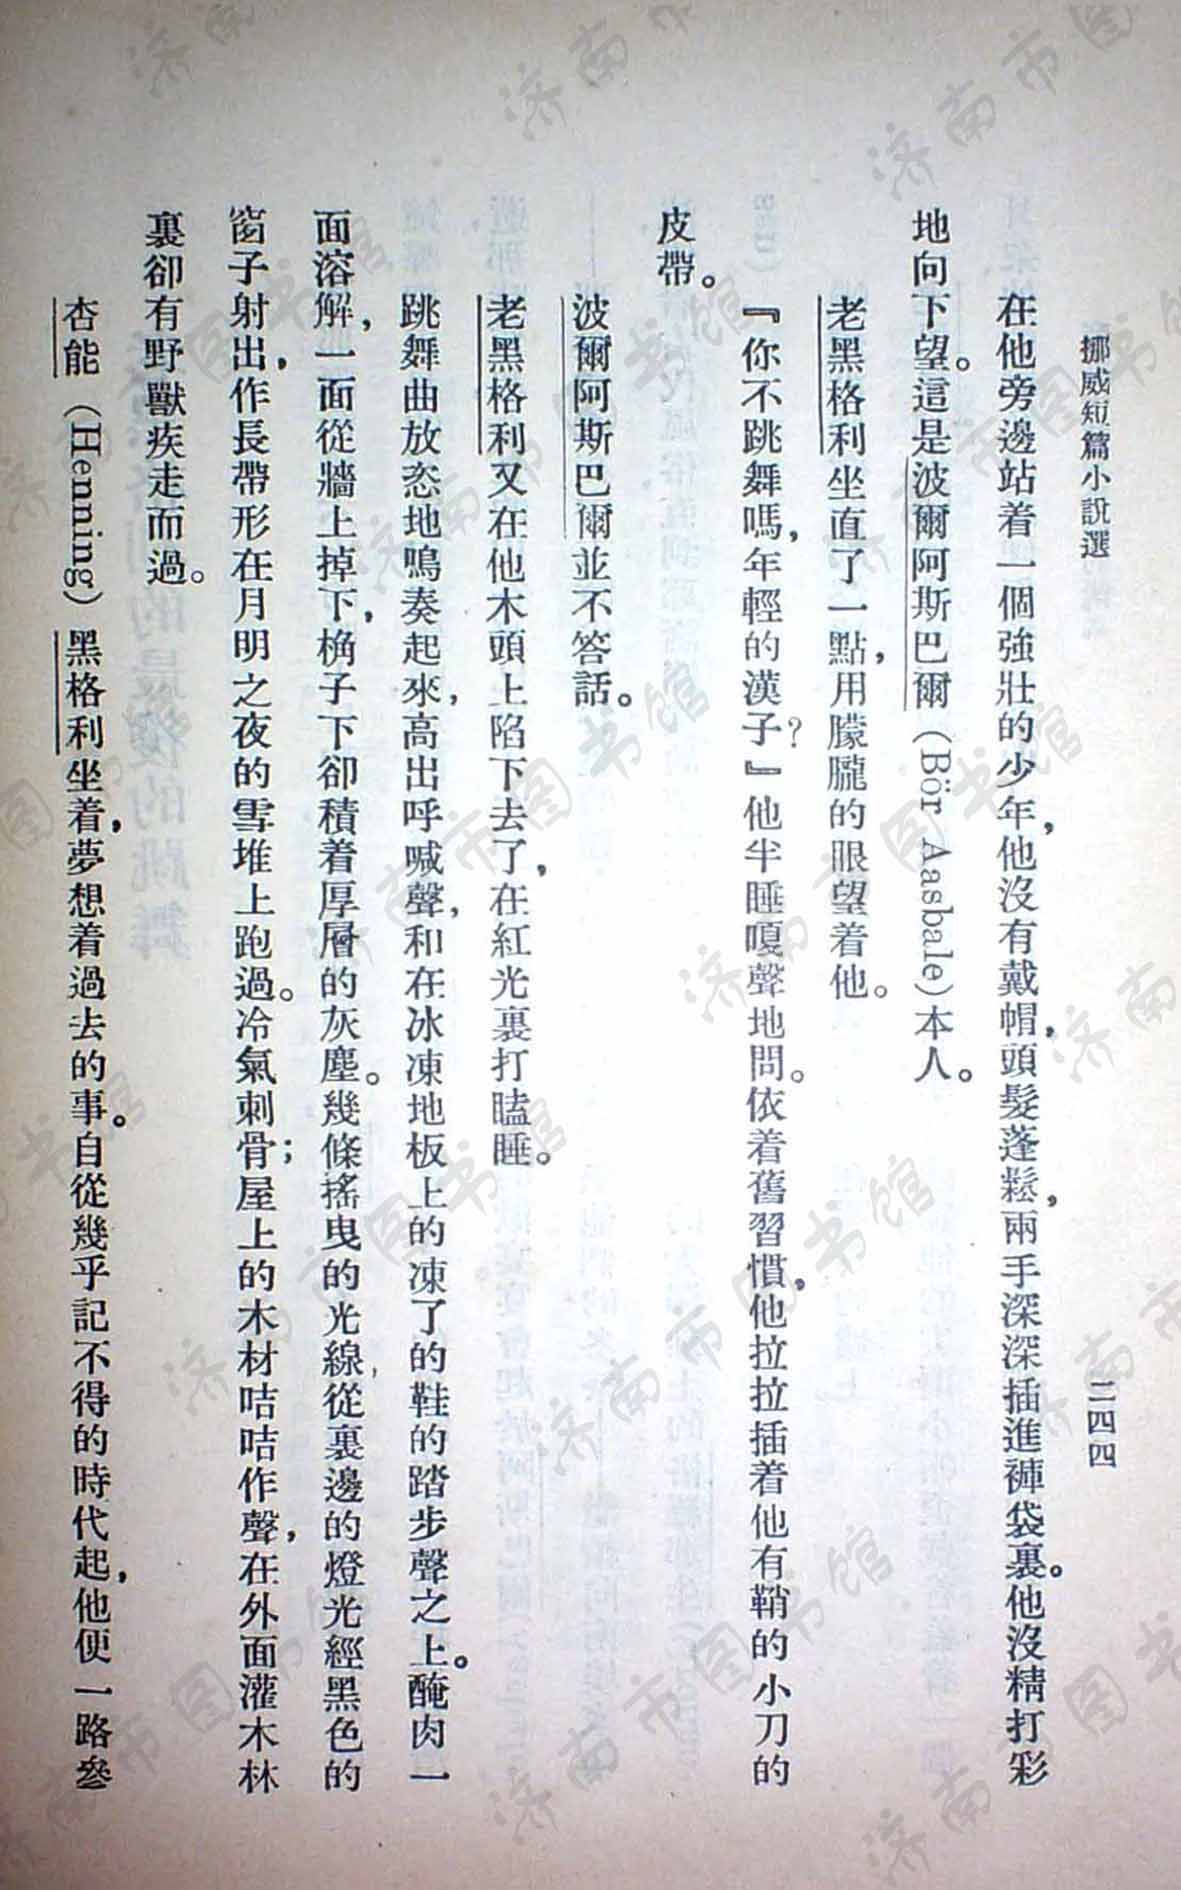 挪威短篇小說選
二四四
在他旁邊站着一個強壯的少年，他沒有戴帽，頭髮蓬鬆，兩手深深插進褲袋裏。他沒精打彩
地向下望。這是波爾阿斯巴爾（Bör Aasbale）本人。
老黑格利坐直了一點，用朦朧的眼望着他。
『你不跳舞嗎，年輕的漢子？』他半睡嗄聲地問。依着舊習慣，他拉拉插着他有鞘的小刀的
皮帶。
波爾阿斯巴爾並不答話。
老黑格利又在他木頭上陷下去了，在紅光裏打瞌睡。
跳舞曲放恣地鳴奏起來，高出呼喊聲，和在冰凍地板上的凍了的鞋的踏步聲之上。醃肉一
面溶解，一面從牆上掉下，桷子下卻積着厚層的灰塵。幾條搖曳的光線從裏邊的燈光經黑色的
窗子射出，作長帶形在月明之夜的雪堆上跑過。冷氣刺骨；屋上的木材咭咭作聲，在外面灌木林
裏卻有野獸疾走而過。
杏能（Henning）黑格利坐着，夢想着過去的事。自從幾乎記不得的時代起，他便一路參